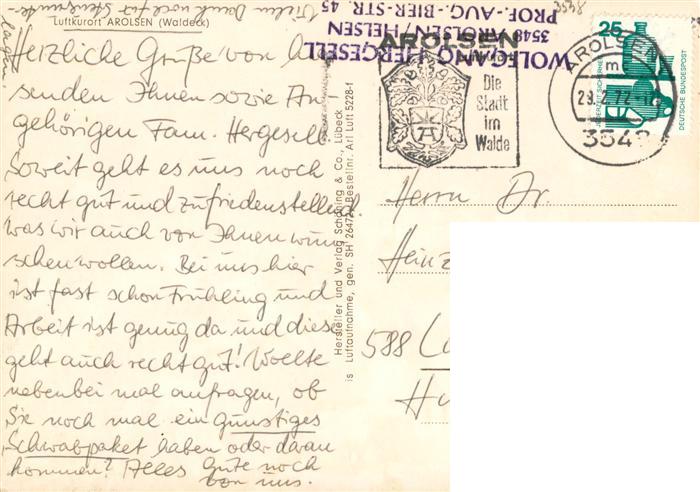 Vielen Dank noch für
lagen
Luftkurort AROLSEN (Waldeck)
Herzliche Grüße von hier
senden Ihnen sowie An
gehörigen Fam. Hergesell
Soweit geht es uns noch
recht gut und zufriedenstellend
was wir auch von Ihnen wün
schen wollen. Bei uns hier
ist fast schon Frühling und
Arbeit ist genug da und diese
geht auch recht gut! Wollte
nebenbei mal anfragen, ob
Sie noch mal ein günstiges
Schwabpaket haben oder daran
kommen? Alles Gute noch
von uns.
Hersteller und Verlag Schöning & Co., Lübeck
Luftaufnahme, gen. SH 264720 Bestellnr. Arl Luft 5228-f
is
WOLFGANG HERGESELL
3548 AROLSEN-HELSEN
PROF.-AUG.-BIER-STR. 45
AROLSEN
Die
Stadt
im
Walde
A
3538
AROLSEN
m
29.2.72
3548
25
JEDERZEIT SICHERHEIT
DEUTSCHE BUNDESPOST
Herrn Dr.
Heinz
588